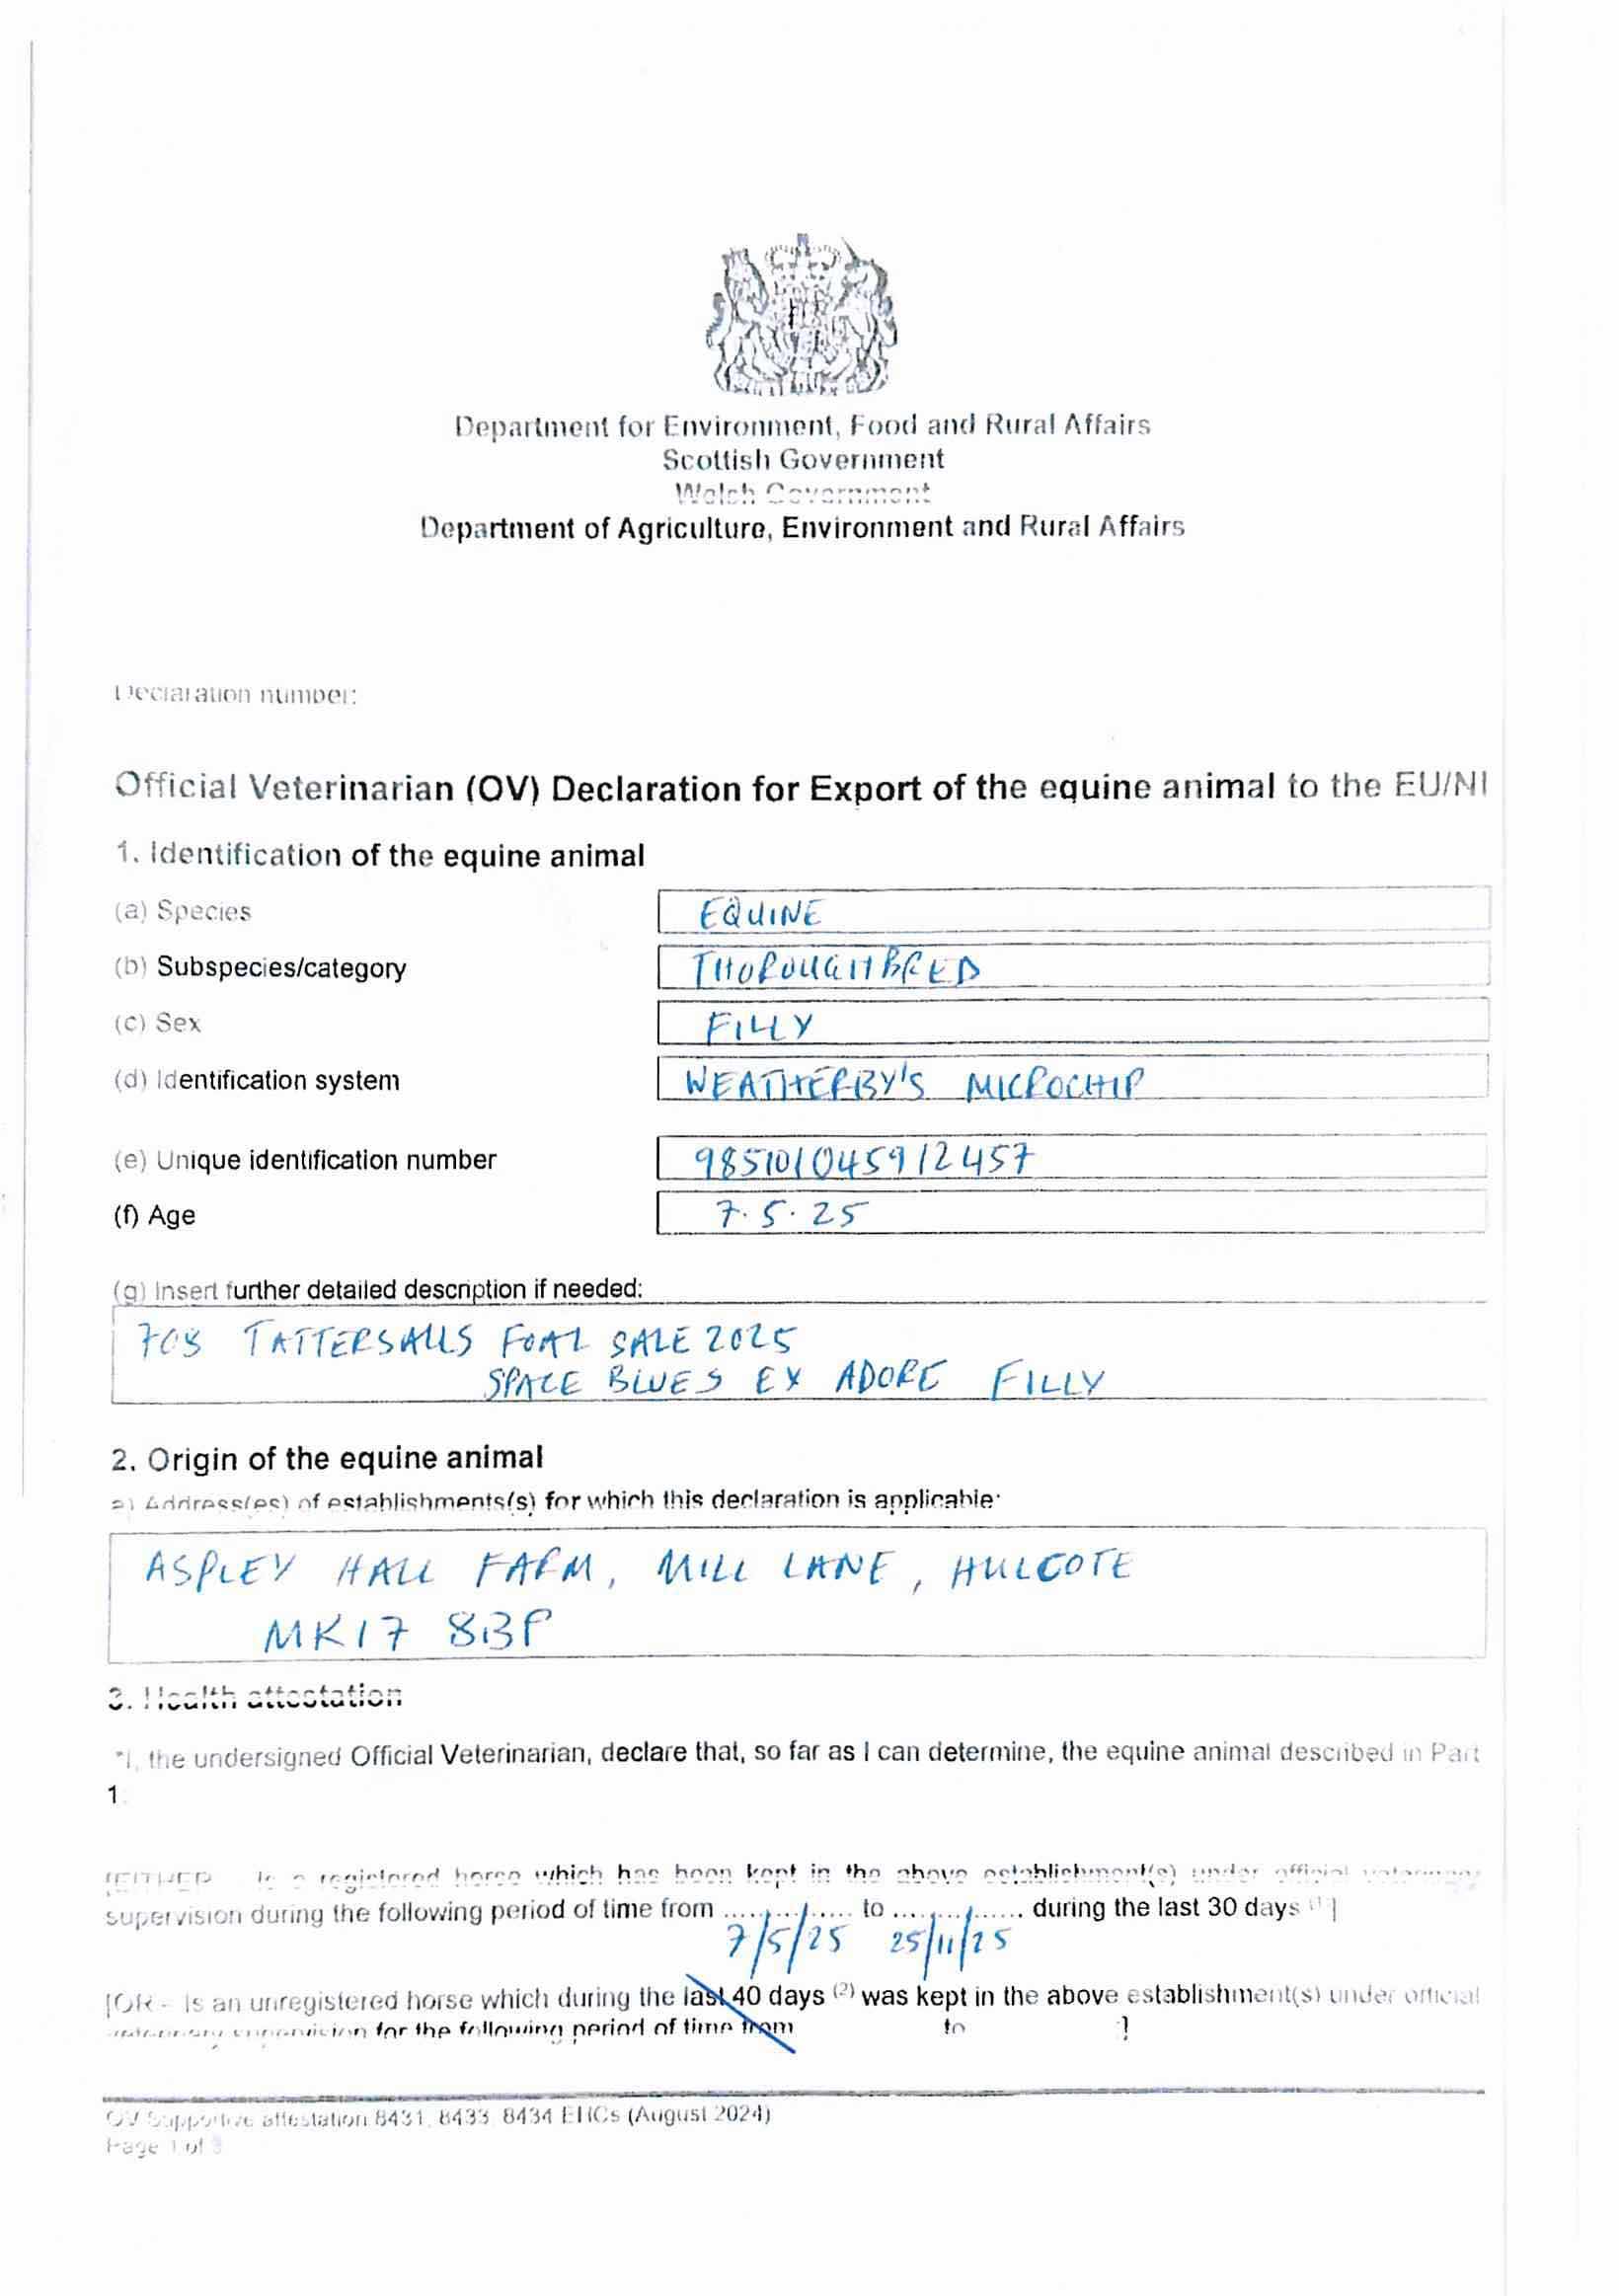 Department for Environment, Food and Rural Affairs
Scottish Government
Welsh Government
Department of Agriculture, Environment and Rural Affairs
Declaration number:
Official Veterinarian (OV) Declaration for Export of the equine animal to the EU/NI
1. Identification of the equine animal
(a) Species EQUINE
(b) Subspecies/category THOROUGHBRED
(c) Sex FILLY
(d) Identification system WEATHERBY'S MICROCHIP
(e) Unique identification number 985101045912457
(f) Age 7.5.25
(g) Insert further detailed description if needed:
708 TATTERSALLS FOAL SALE 2025
SPACE BLUES EX ADORE FILLY
2. Origin of the equine animal
a) Address(es) of establishments(s) for which this declaration is applicable:
ASPLEY HALL FARM, MILL LANE, HULCOTE
MK17 8BP
3. Health attestation
*I, the undersigned Official Veterinarian, declare that, so far as I can determine, the equine animal described in Part
1.
[EITHER - Is a registered horse which has been kept in the above establishment(s) under official veterinary
supervision during the following period of time from .............. to .............. during the last 30 days (1)]
7/5/25 25/11/25
[OR - Is an unregistered horse which during the last 40 days (2) was kept in the above establishment(s) under official
veterinary supervision for the following period of time from to ]
OV Supportive attestation 8431, 8433, 8434 EHCs (August 2024)
Page 1 of 3